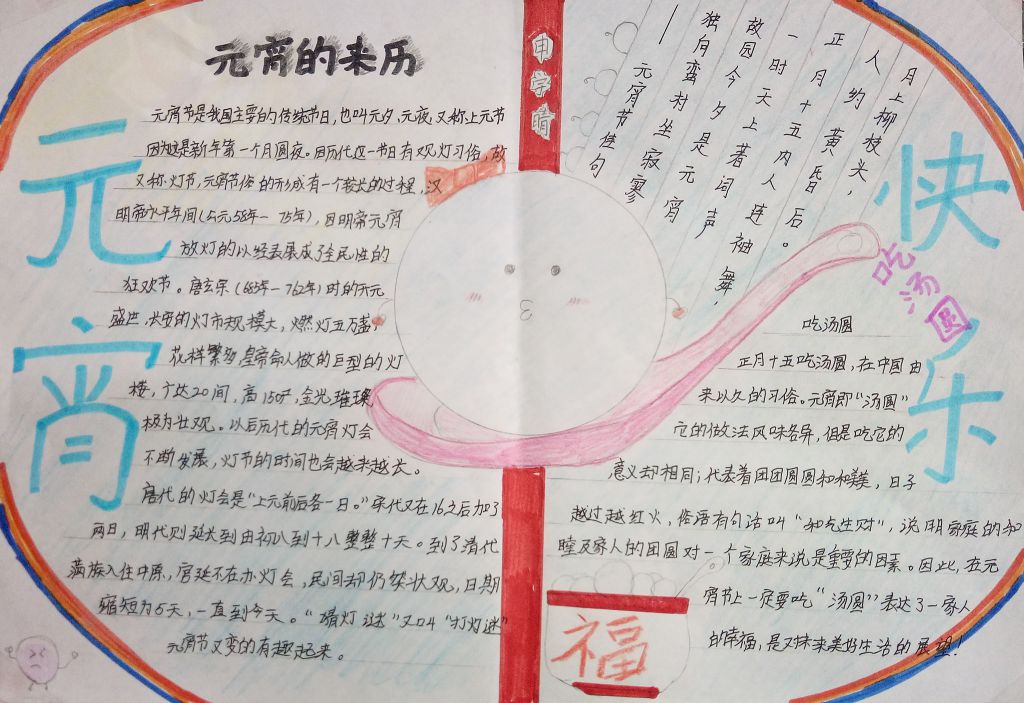 元宵的来历
元宵节是我国主要的传统节日，也叫元夕、元夜，又称上元节
因为这是新年第一个月圆夜。因历代这一节日有观灯习俗，故
又称灯节，元宵节俗的形成有一个较长的过程，汉
明帝永平年间(公元58年—75年)，因明帝元宵
放灯的以经发展成了全民性的
狂欢节。唐玄宗(685年—762年)时的开元
盛世，长安的灯市规模大，燃灯五万盏，
花样繁多，皇帝命人做的巨型的灯
楼，广达20间，高150尺，金光璀璨
极为壮观。以后历代的元宵灯会
不断发展，灯节的时间也会越来越长。
唐代的灯会是“上元前后各一日。”宋代又在16之后加了
两日，明代则延长到由初八到十八整整十天。到了清代
满族入住中原，宫廷不在办灯会，民间却仍然壮观，日期
缩短为5天，一直到今天。“猜灯谜”又叫“打灯谜”
元宵节又变的有趣起来。
元宵
申学晴
月上柳枝头，
人约黄昏后。
正月十五内人连袖舞，
一时天上著词声
故园今夕是元宵
独向蛮村坐寂寥
——元宵节佳句
快乐
吃汤圆
吃汤圆
正月十五吃汤圆，在中国由
来以久的习俗。元宵即“汤圆”
它的做法风味各异，但是吃它的
意义却相同；代表着团团圆圆和和美美，日子
越过越红火，俗语有句话叫“和气生财”，说明家庭的和
睦及家人的团圆对一个家庭来说是重要的因素。因此，在元
宵节上一定要吃“汤圆”表达了一家人
的幸福，是对未来美好生活的展望！
福